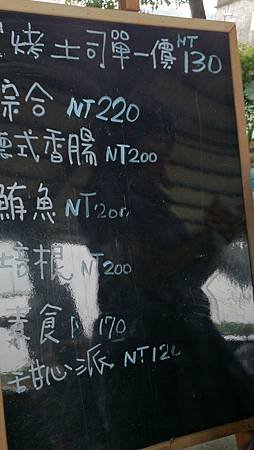 烤土司單一價 NT 130
綜合 NT220
德式香腸 NT200
鮪魚 NT200
培根 NT200
素食 170
甜心派 NT120